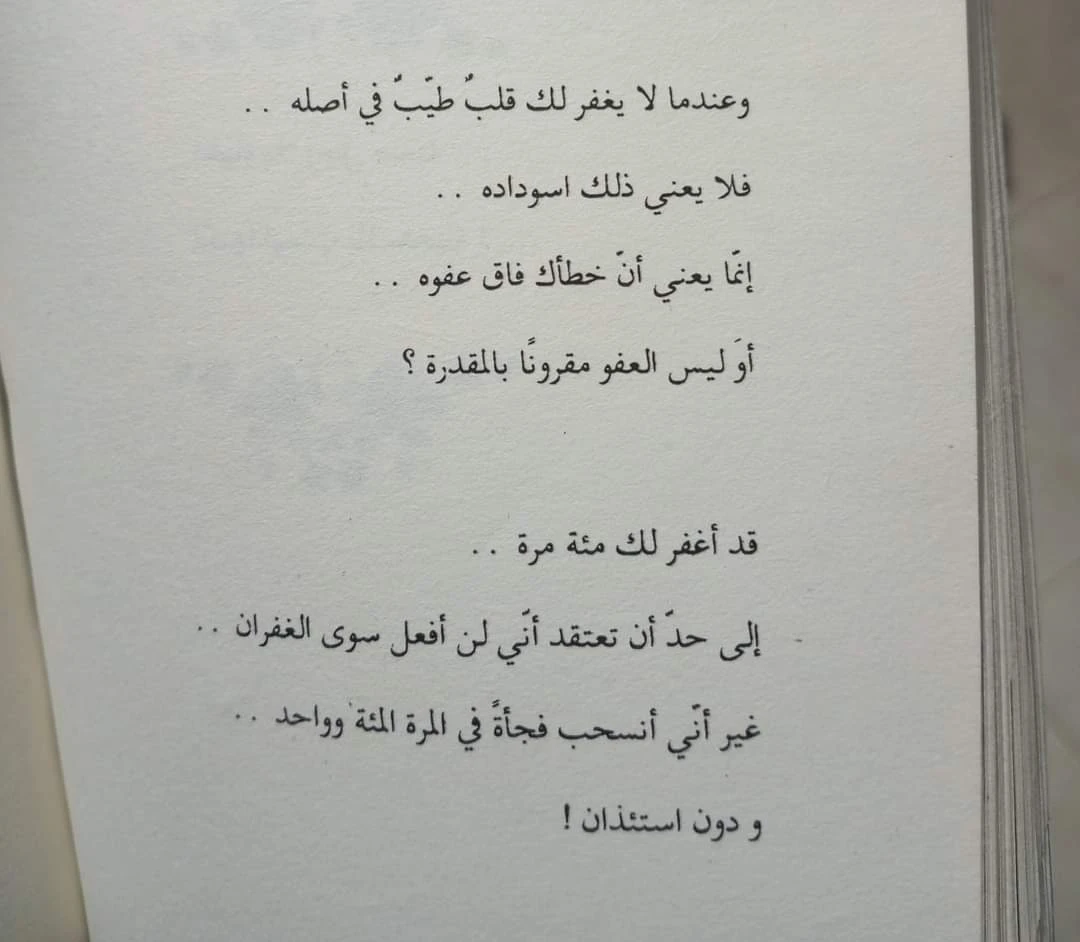 وعندما لا يغفر لك قلبٌ طيّبٌ في أصله . .
فلا يعني ذلك اسوداده . .
إنّما يعني أنّ خطأك فاق عفوه . .
أوَ ليس العفو مقرونًا بالمقدرة ؟
قد أغفر لك مئة مرة . .
إلى حدّ أن تعتقد أنّي لن أفعل سوى الغفران . .
غير أنّي أنسحب فجأةً في المرة المئة وواحد . .
و دون استئذان !